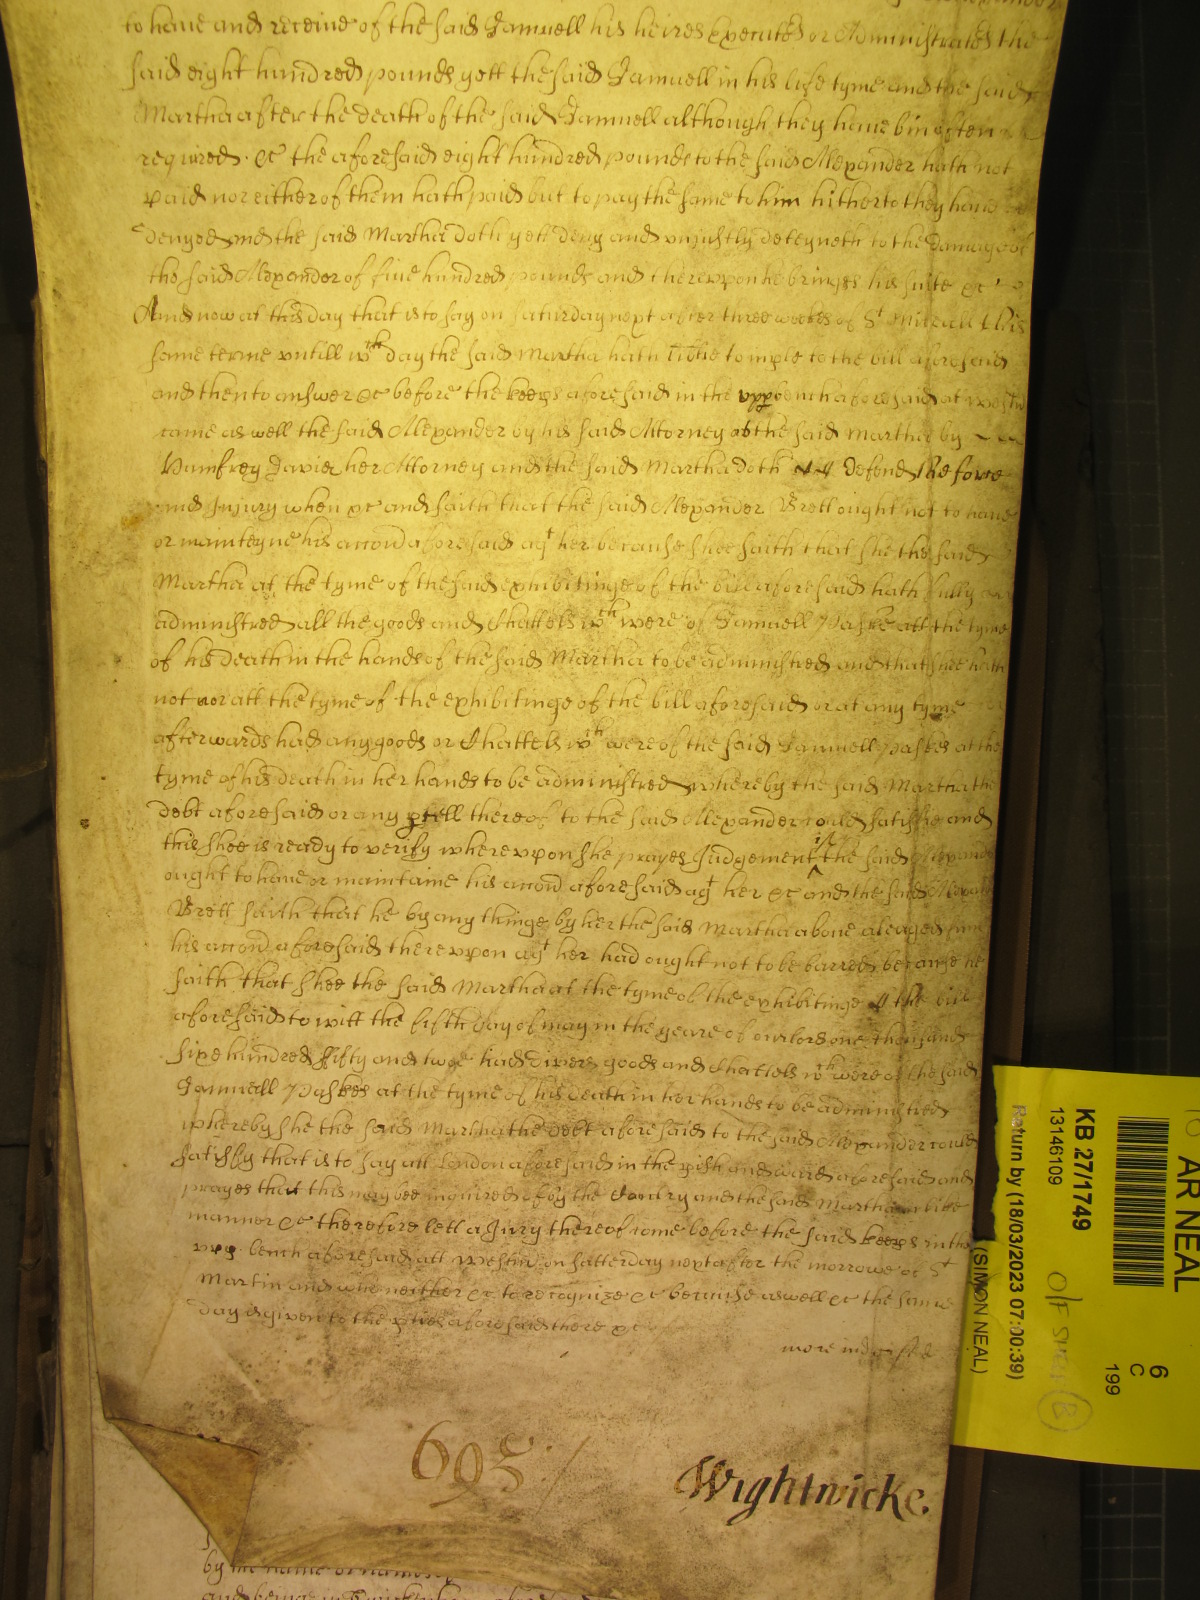 to haue and receiue of the said Samuell his heires Executors or Administrators the
said eight hundred pounds yett the said Samuell in his life tyme and the said
Martha after the death of the said Samuell although they haue bin often
required &c the aforesaid eight hundred pounds to the said Alexander hath not
paid nor either of them hath paid but to pay the same to him hitherto they haue
denyed and the said Martha doth yett deny and uniustly deteyneth to the damage of
the said Alexander of fiue hundred pounds and therevpon he brings his suite &c
And now at this day that is to say on Saturday next after three weekes of St Micall this
same terme vntill wch day the said Martha hath to imple to the bill aforesaid
and then to answer &c before the keeps aforesaid in the vpp bench aforesaid at westm
came as well the said Alexander by his said Attorney as the said Martha by
Humfrey Davies her Attorney and the said Martha doth Defend the force
and Iniury when &c and saith that the said Alexander Brett ought not to haue
or mainteyne his accon aforesaid agt her because shee saith that she the said
Martha at the tyme of the said exhibitinge of the bill aforesaid hath fully
administred all the goods and Chattells wch were of Samuell Paske att the tyme
of his death in the hands of the said Martha to be administred and that shee hath
not nor att the tyme of the exhibitinge of the bill aforesaid or at any tyme
afterwards had any goods or Chattells wch were of the said Samuell Paskes at the
tyme of his death in her hands to be administred whereby the said Martha the
debt aforesaid or any pcell thereof to the said Alexander could satisfie and
this shee is ready to verify wherevpon she prayes Iudgement if the said Alexand
ought to haue or maintaine his accon aforesaid agt her &c and the said Alexand
Brett saith that he by any thinge by her the said Martha aboue aleaged from
his accon aforesaid therevpon agt her had ought not to be barred because he
saith that shee the said Martha at the tyme of the exhibitinge of the bill
aforesaid to witt the fifth day of may in the yeare of our lord one thousand
sixe hundred fifty and twoe had divers goods and Chattells wch were of the said
Samuell Paskes at the tyme of his death in her hands to be administred
whereby she the said Martha the debt aforesaid to the said Alexander could
satisfy that is to say att London aforesaid in the pish and ward aforesaid and
prayes that this may bee inquired of by the Country and the said Martha in like
manner &c therefore lett a Iury thereof come before the said keeps in the
vpp bench aforesaid att westm on satterday next after the morrowe of St
Martin and who neither &c to recognize &c because aswell &c the same
day is given to the pties aforesaid there &c
more
695
Wightwicke.
by the name
AR NEAL
6
C
199
KB 27/1749
13146109
Return by (18/03/2023 07:00:39)
(SIMON NEAL)